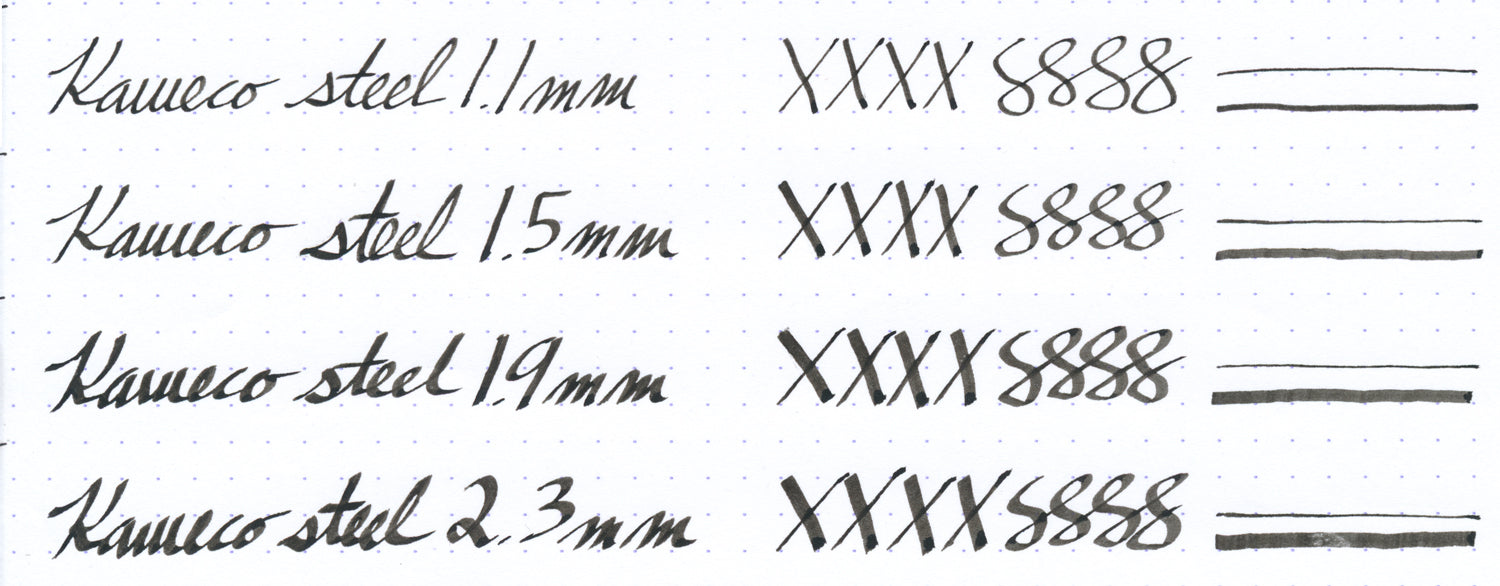 Kaweco steel 1.1mm XXXX 8888
Kaweco steel 1.5mm XXXX 8888
Kaweco steel 1.9mm XXXX 8888
Kaweco steel 2.3mm XXXX 8888